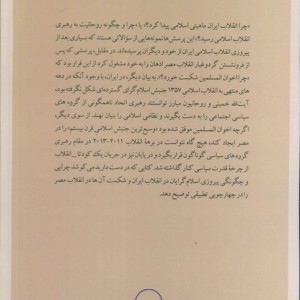 چرا انقلاب ایران ماهیتی اسلامی پیدا کرد؟، یا «چرا و چگونه روحانیت به رهبری
انقلاب اسلامی رسید؟» این پرسش‌ها نمونه‌هایی از سؤالاتی هستند که بسیاری بعد از
پیروزی انقلاب اسلامی ایران از خود و دیگران پرسیده‌اند. در مقابل، پرسشی که پس
از فرونشستن گرد و غبار انقلاب مصر اذهان را به خود مشغول کرد از این قرار بود که
«چرا اخوان المسلمین شکست خورد؟». به بیان دیگر، در ایران، با وجود آنکه در دهه
های منتهی به انقلاب اسلامی ۱۳۵۷ جنبش اسلام گرای گسترده‌ای شکل نگرفته بود،
آیت‌الله خمینی و روحانیون مبارز توانستند رهبری اتحاد ناهمگونی از گروه های
سیاسی اجتماعی را به دست بگیرند و نظامی اسلامی را بنیان نهند. از سوی دیگر،
اگرچه اخوان المسلمین موفق شده بود وسیع ترین جنبش اسلامی قرن بیستم را در
مصر ایجاد کند، هیچ گاه نتوانست در برههٔ انقلاب ۲۰۱۱-۲۰۱۳ در مقام رهبری
گروه های سیاسی گوناگون قرار بگیرد و در پایان نیز در جریان یک کودتا _ انقلاب
از چرخهٔ قدرت سیاسی کنار گذاشته شد. کتابی که در دست دارید می کوشد چرایی
و چگونگی پیروزی اسلام گرایان در انقلاب ایران و شکست آن ها در انقلاب مصر
را در چهارچوبی تطبیقی توضیح دهد.